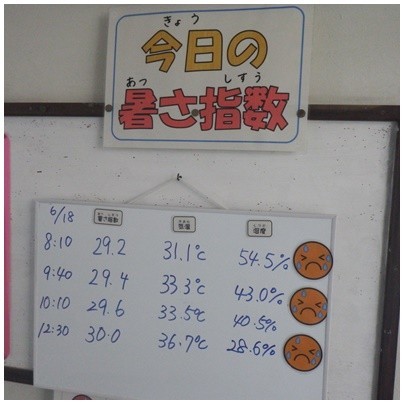 きょう
今日の
あつ しすう
暑さ指数
6/18 暑さ指数 気温 湿度
8:10 29.2 31.1℃ 54.5%
9:40 29.4 33.3℃ 43.0%
10:10 29.6 33.5℃ 40.5%
12:30 30.0 36.7℃ 28.6%